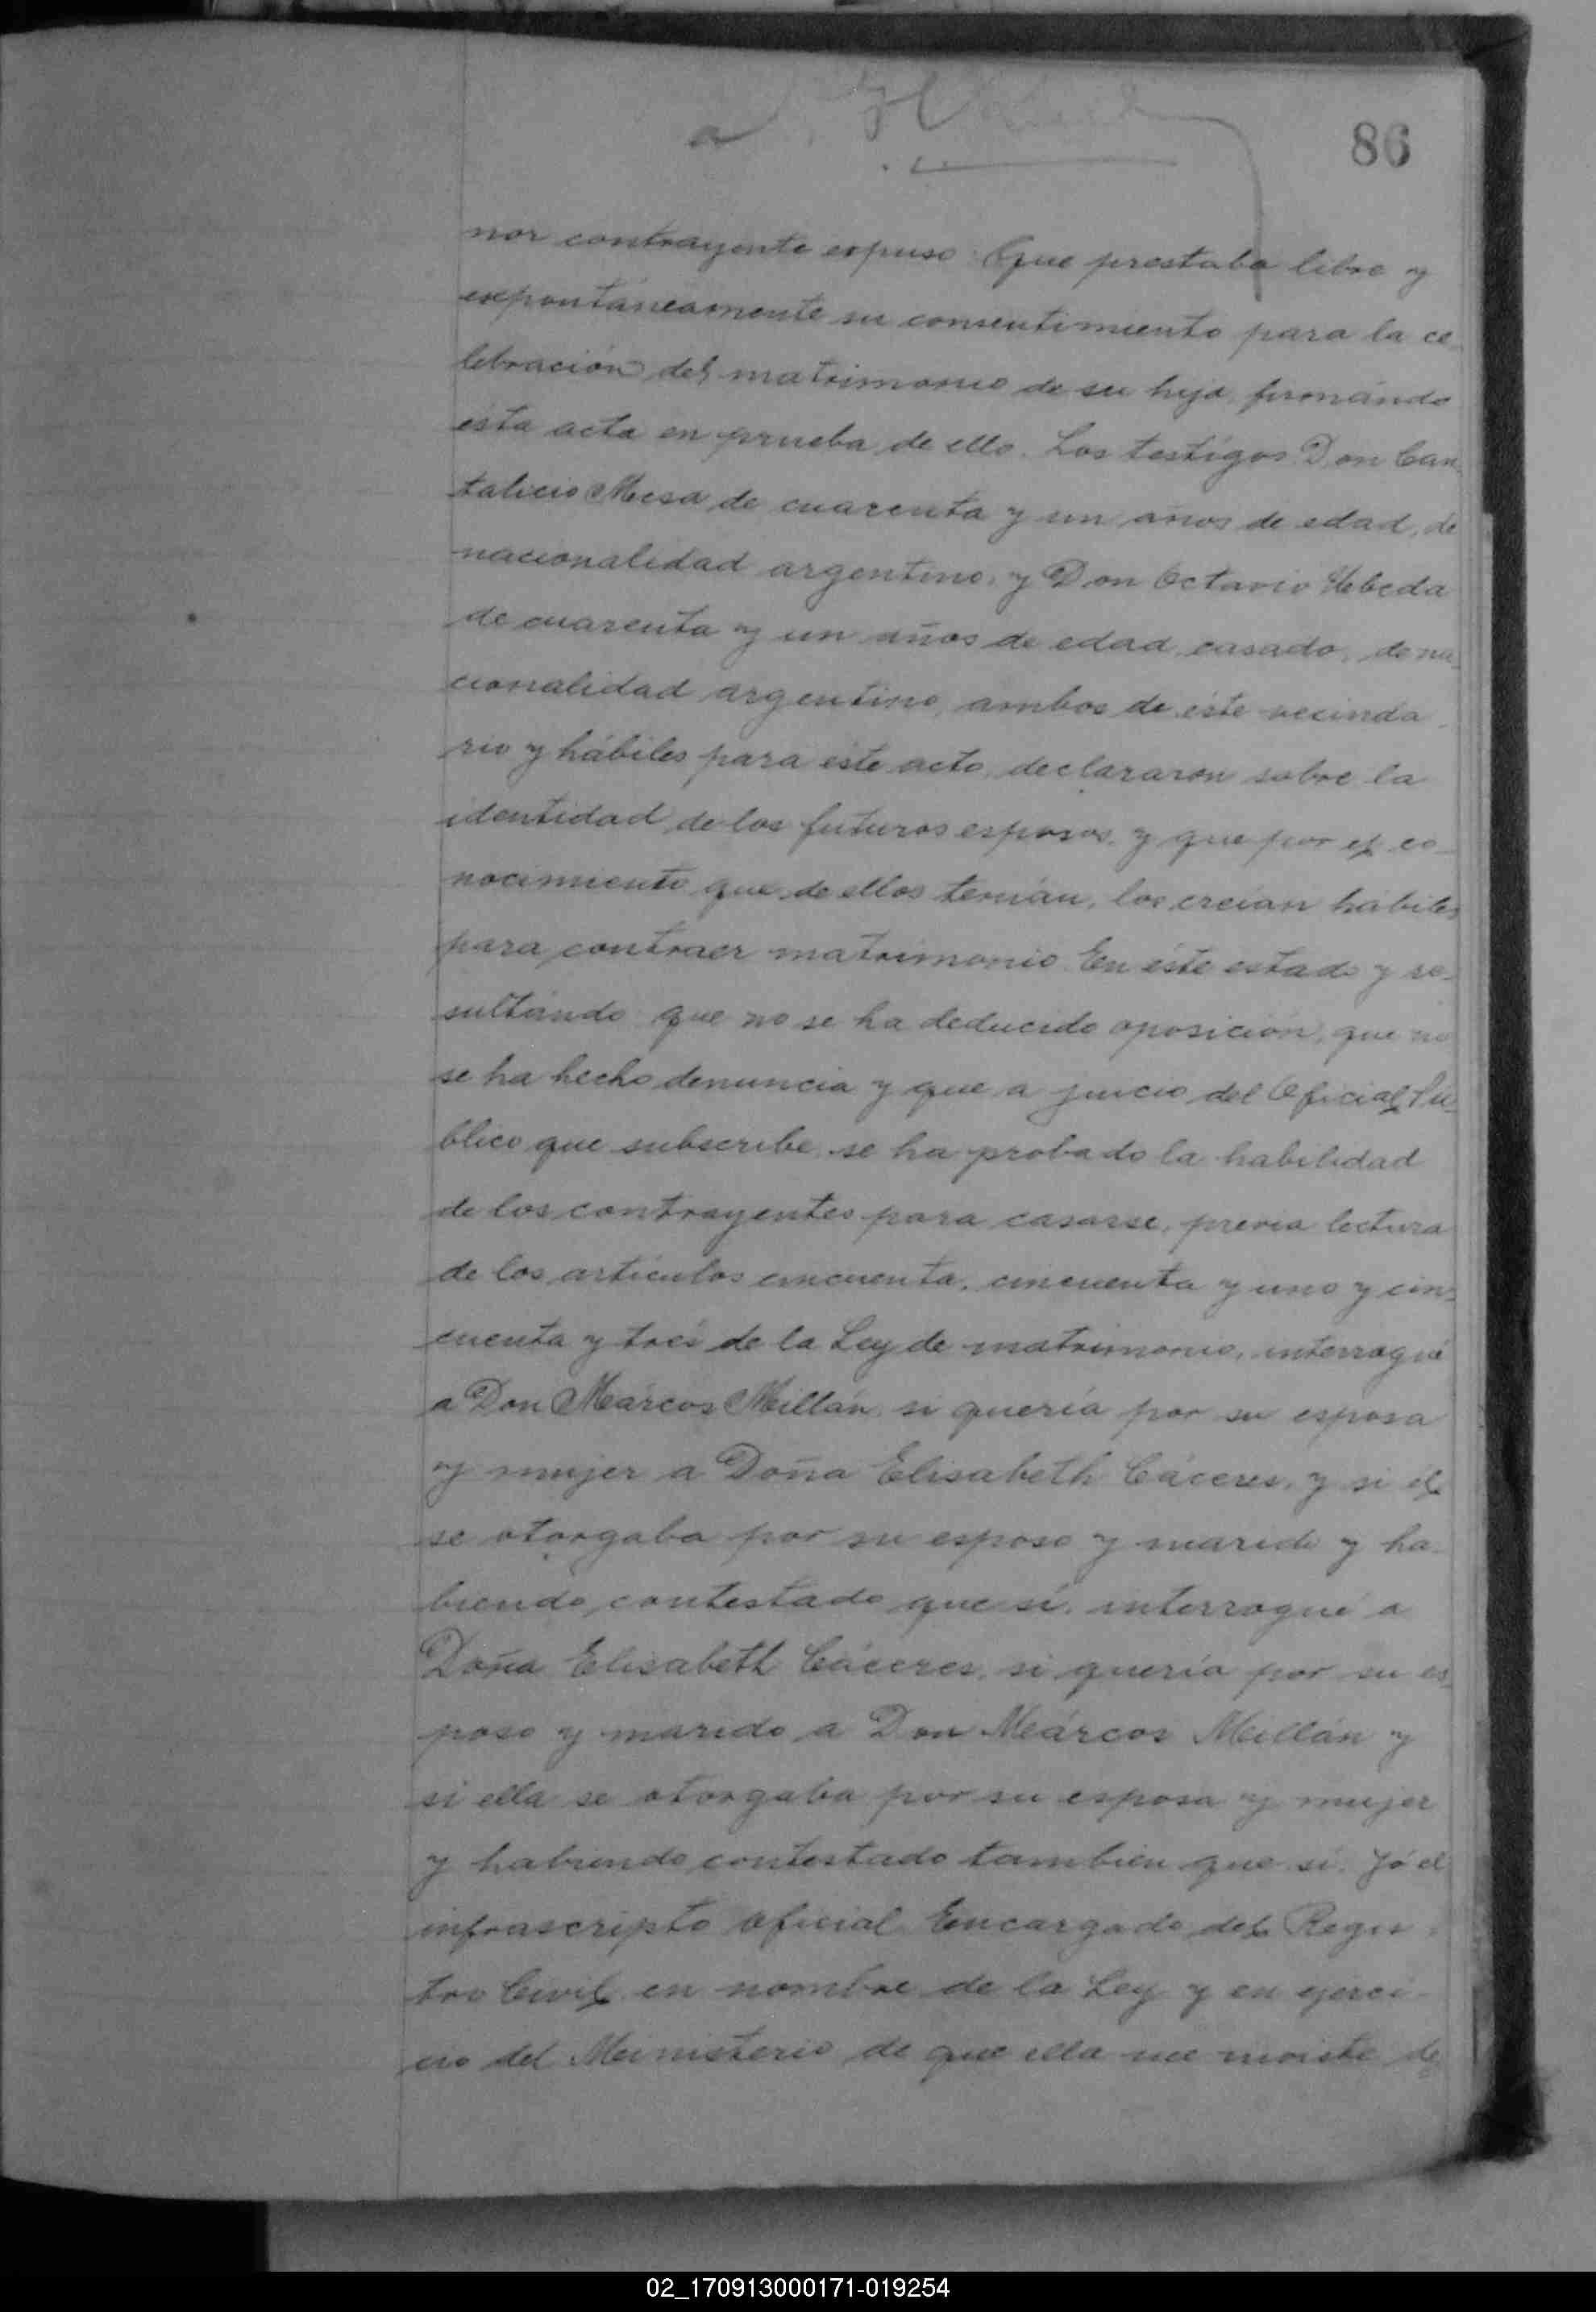 86
nor contrayente expuso: Que prestaba libre y
expontáneamente su consentimiento para la ce-
lebración del matrimonio de su hija, firmándo
ésta acta en prueba de ello. Los testigos Don Can-
talicio Mesa de cuarenta y un años de edad, de
nacionalidad argentino, y Don Octavio Ubeda
de cuarenta y un años de edad, casado, de na-
cionalidad argentino, ambos de éste vecinda-
rio y hábiles para éste acto, declararon sobre la
identidad de los futuros esposos, y que por el co-
nocimiento que de ellos tenían, los creían hábiles
para contraer matrimonio. En éste estado y re-
sultándo que no se ha deducido oposición, que no
se ha hecho denuncia y que a juicio del Oficial Pú-
blico que subscribe, se ha probado la habilidad
de los contrayentes para casarse, previa lectura
de los artículos cincuenta, cincuenta y uno y cin-
cuenta y tres de la Ley de matrimonio, interrogué
a Don Márcos Millán, si quería por su esposa
y mujer a Doña Elisabeth Cáceres, y si él
se otorgaba por su esposo y marido y ha-
biendo contestado que sí, interrogué a
Doña Elisabeth Cáceres, si quería por su es-
poso y marido a Don Márcos Millán y
si ella se otorgaba por su esposa y mujer
y habiendo contestado tambien que sí, Yó el
infrascripto Oficial Encargado del Regis-
tro Civil, en nombre de la Ley y en ejerci-
cio del Ministerio de que ella me inviste de
02_170913000171-019254